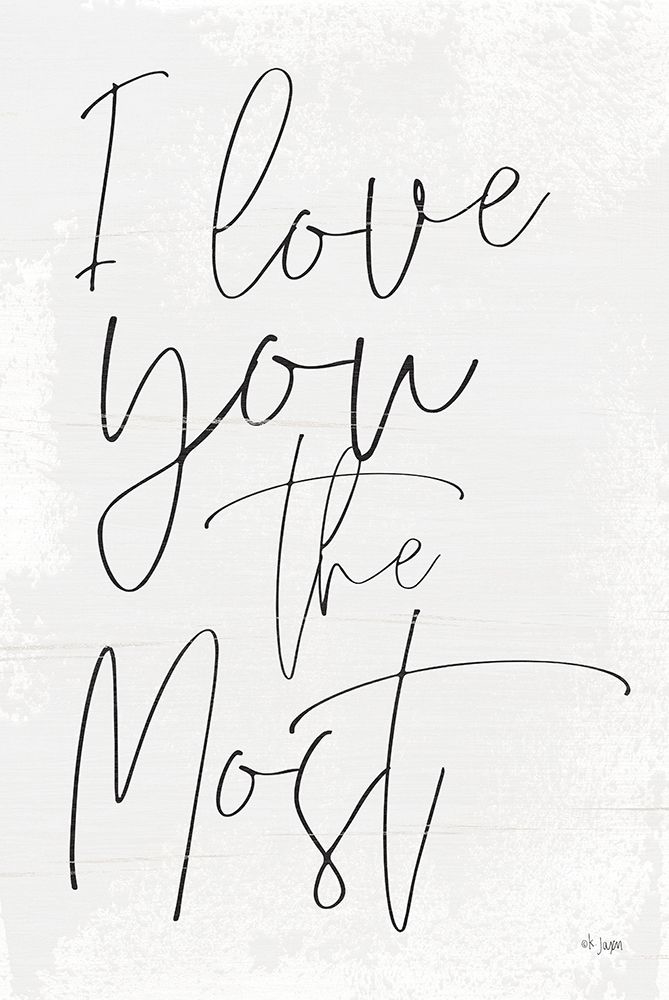 I love
you
the
Most
©K Jaxn